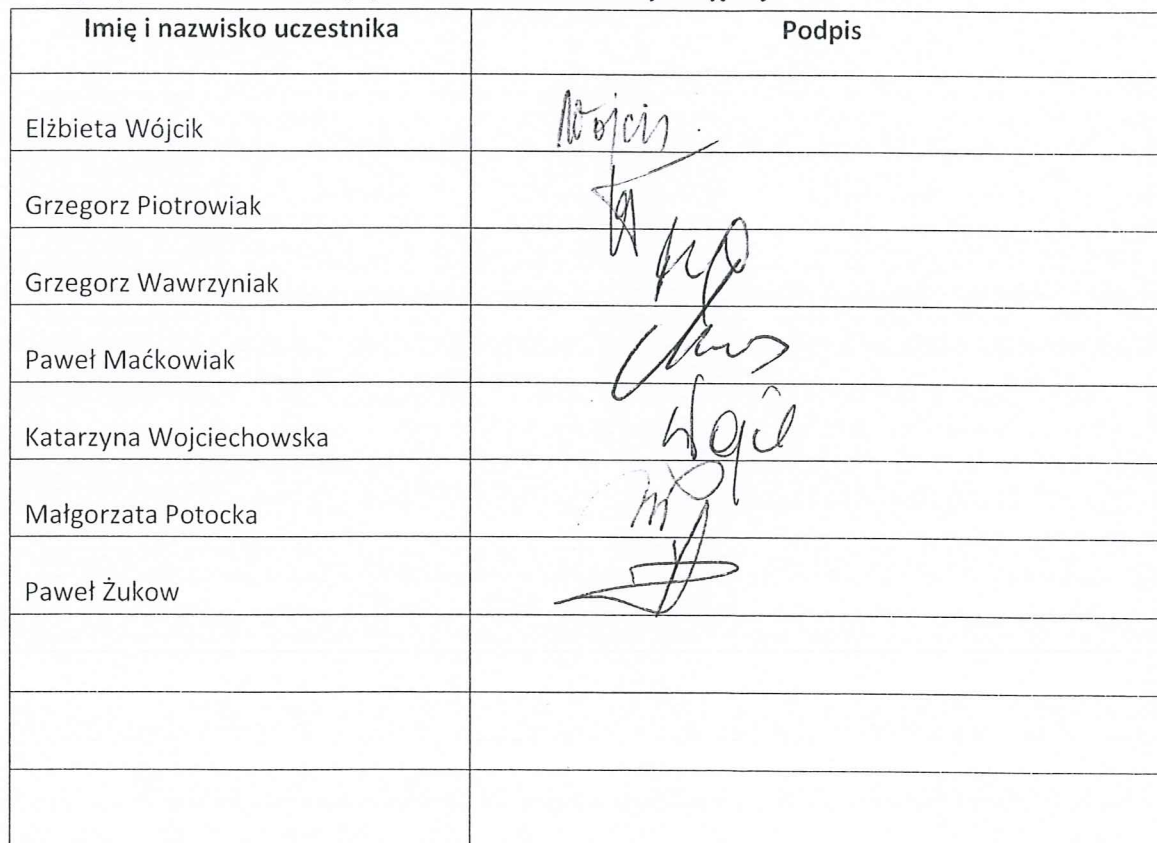 Imię i nazwisko uczestnika Podpis
Elżbieta Wójcik Wojcik
Grzegorz Piotrowiak
Grzegorz Wawrzyniak
Paweł Maćkowiak
Katarzyna Wojciechowska
Małgorzata Potocka
Paweł Żukow